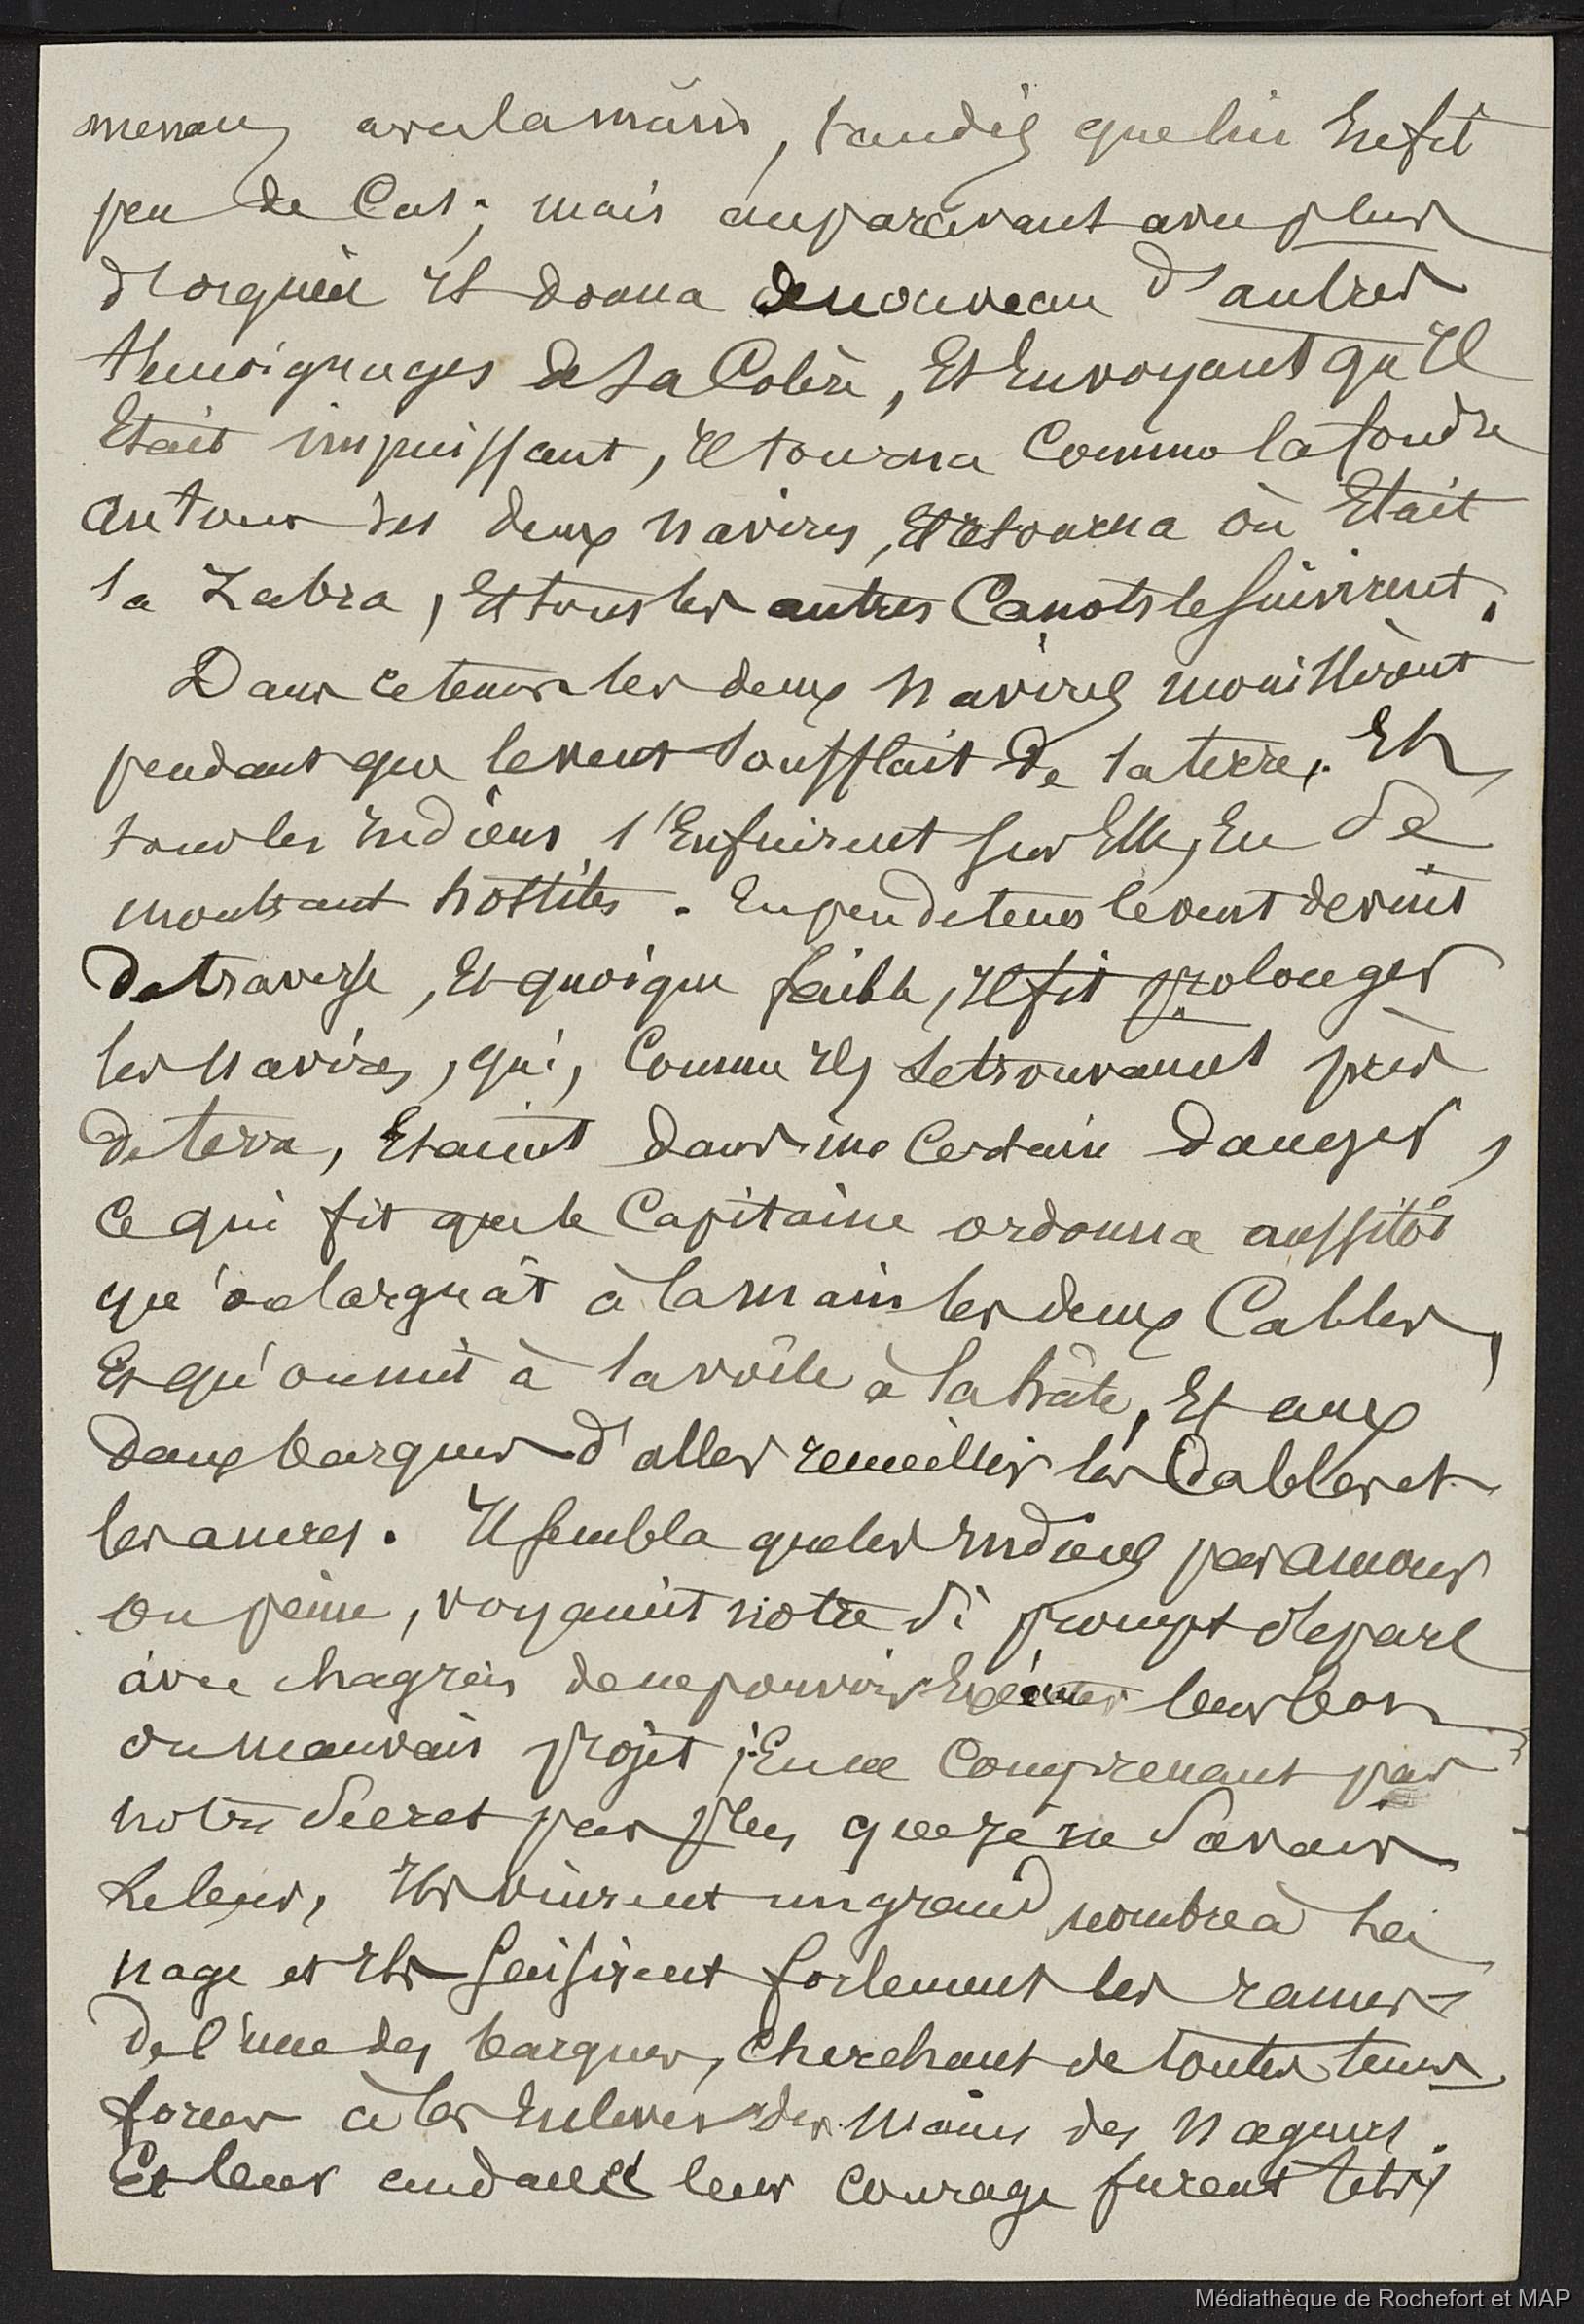 menaça avec la main, tandis que lui n'en fit
peu de Cas; mais auparavant avec plus
d'orgueil Il donna de nouveau d'autres
temoignages de sa Colère, Et En voyant qu'Il
Etait impuissant, Il tourna Comme la foudre
autour des deux navires, Et retourna où Etait
la Zabra, Et tous les autres Canots le suivirent.
Dans ce tems les deux navires mouillèrent
pendant que le vent soufflait de la terre. Et
tous les indiens s'Enfuirent sur Elle, En se
montrant hostiles. En peu de tems le vent devint
de traverse, Et quoique faible, Il fit prolonger
les navires, qui, Comme Ils se trouvaient près
de terre, Etaient dans un Certain danger,
Ce qui fit que le Capitaine ordonna aussitôt
qu'on larguât à la main les deux Cables,
Et qu'on mit à la voile à la hâte, Et aux
deux barques d'aller recueillir les Cables et
les ancres. Il sembla que les Indiens par amour
ou peine, voyaient notre si prompt depart
avec chagrin de ne pouvoir Exécuter leur bon
ou mauvais projet; En ne Comprenant pas
notre Secret pas plus que je ne Savais
le leur, Ils vinrent un grand nombre à la
nage et Ils saisirent fortement les rames
de l'une des barques, Cherchant de toutes leurs
forces à les Enlever des mains des nageurs.
Et leur audace et leur Courage furent tels
Médiathèque de Rochefort et MAP